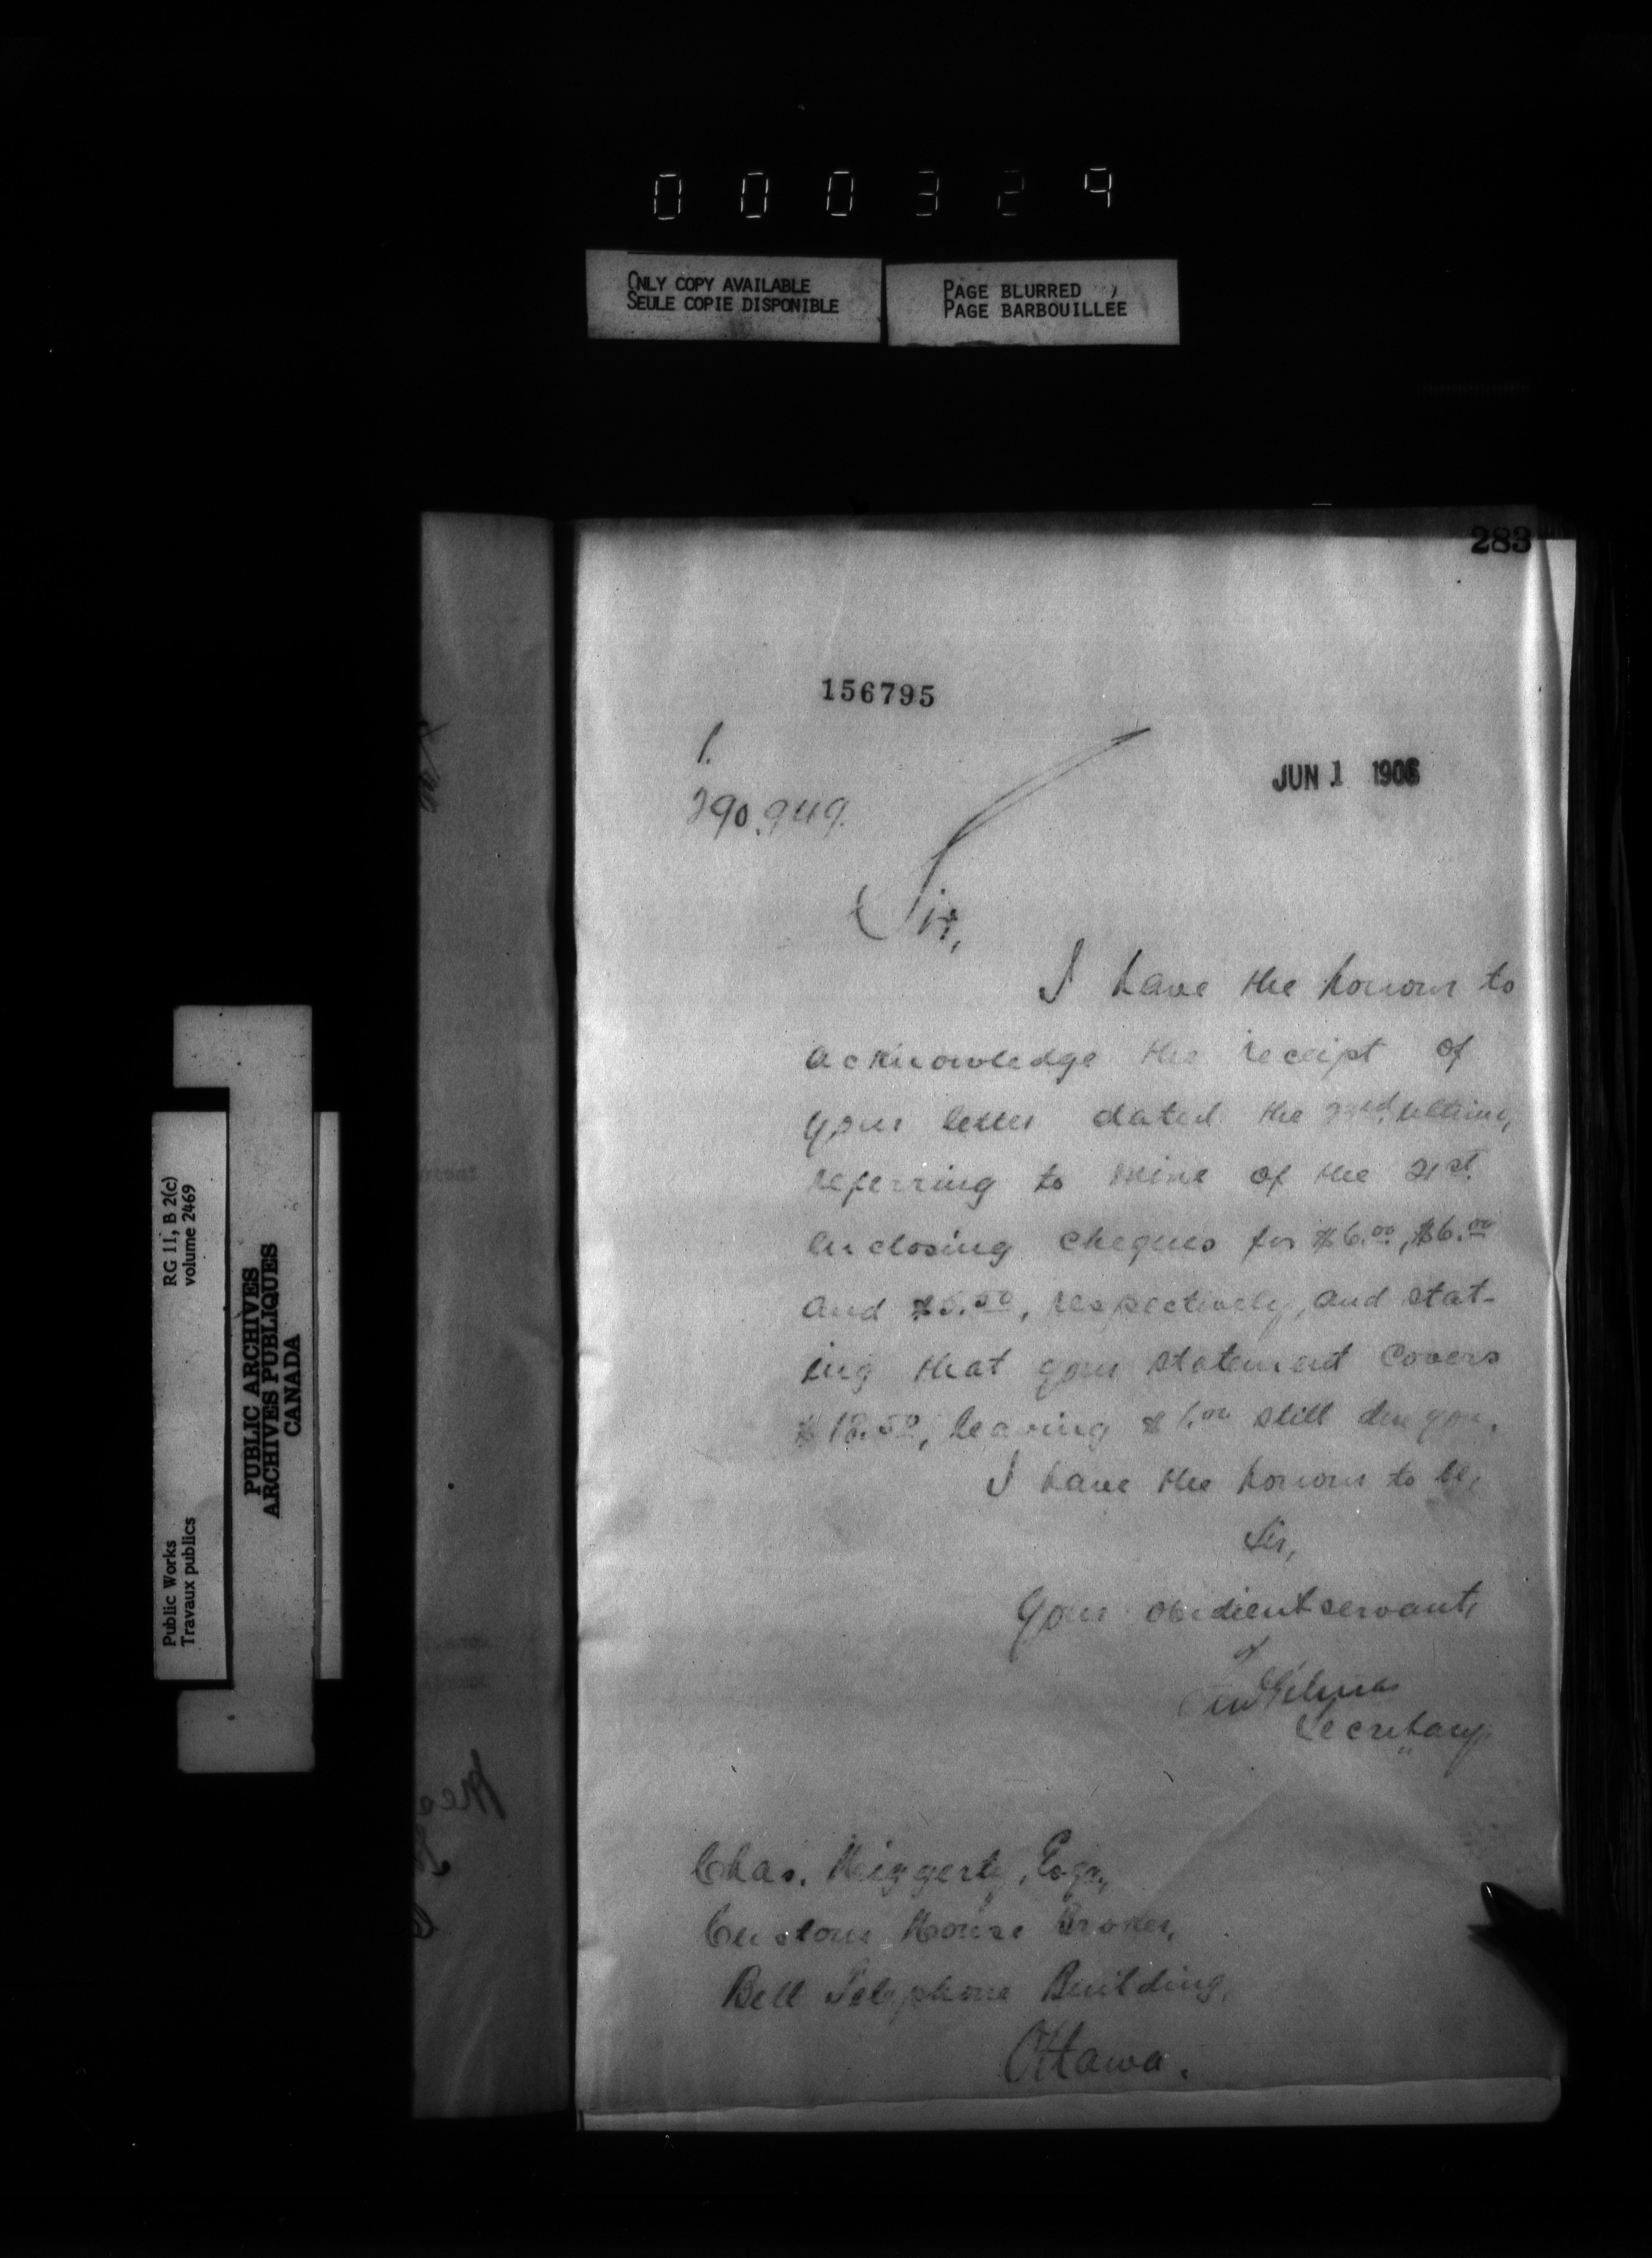 000329
ONLY COPY AVAILABLE
SEULE COPIE DISPONIBLE
PAGE BLURRED
PAGE BARBOUILLEE
Public Works
Travaux publics
RG 11, B 2(c)
volume 2469
PUBLIC ARCHIVES
ARCHIVES PUBLIQUES
CANADA
283
156795
1.
290.949.
JUN 1 1906
Sir,
I have the honour to
acknowledge the receipt of
your letter dated the ultimo,
referring to mine of the 21st.
enclosing cheques for $6.00, $6.00
and $5.50, respectively, and stat-
ing that your statement covers
$18.50, leaving $1.00 still due you.
I have the honour to be,
Sir,
Your obedient servant,
Secretary
Chas. Esqr.,
Custom House Broker,
Bell Telephone Building,
Ottawa.